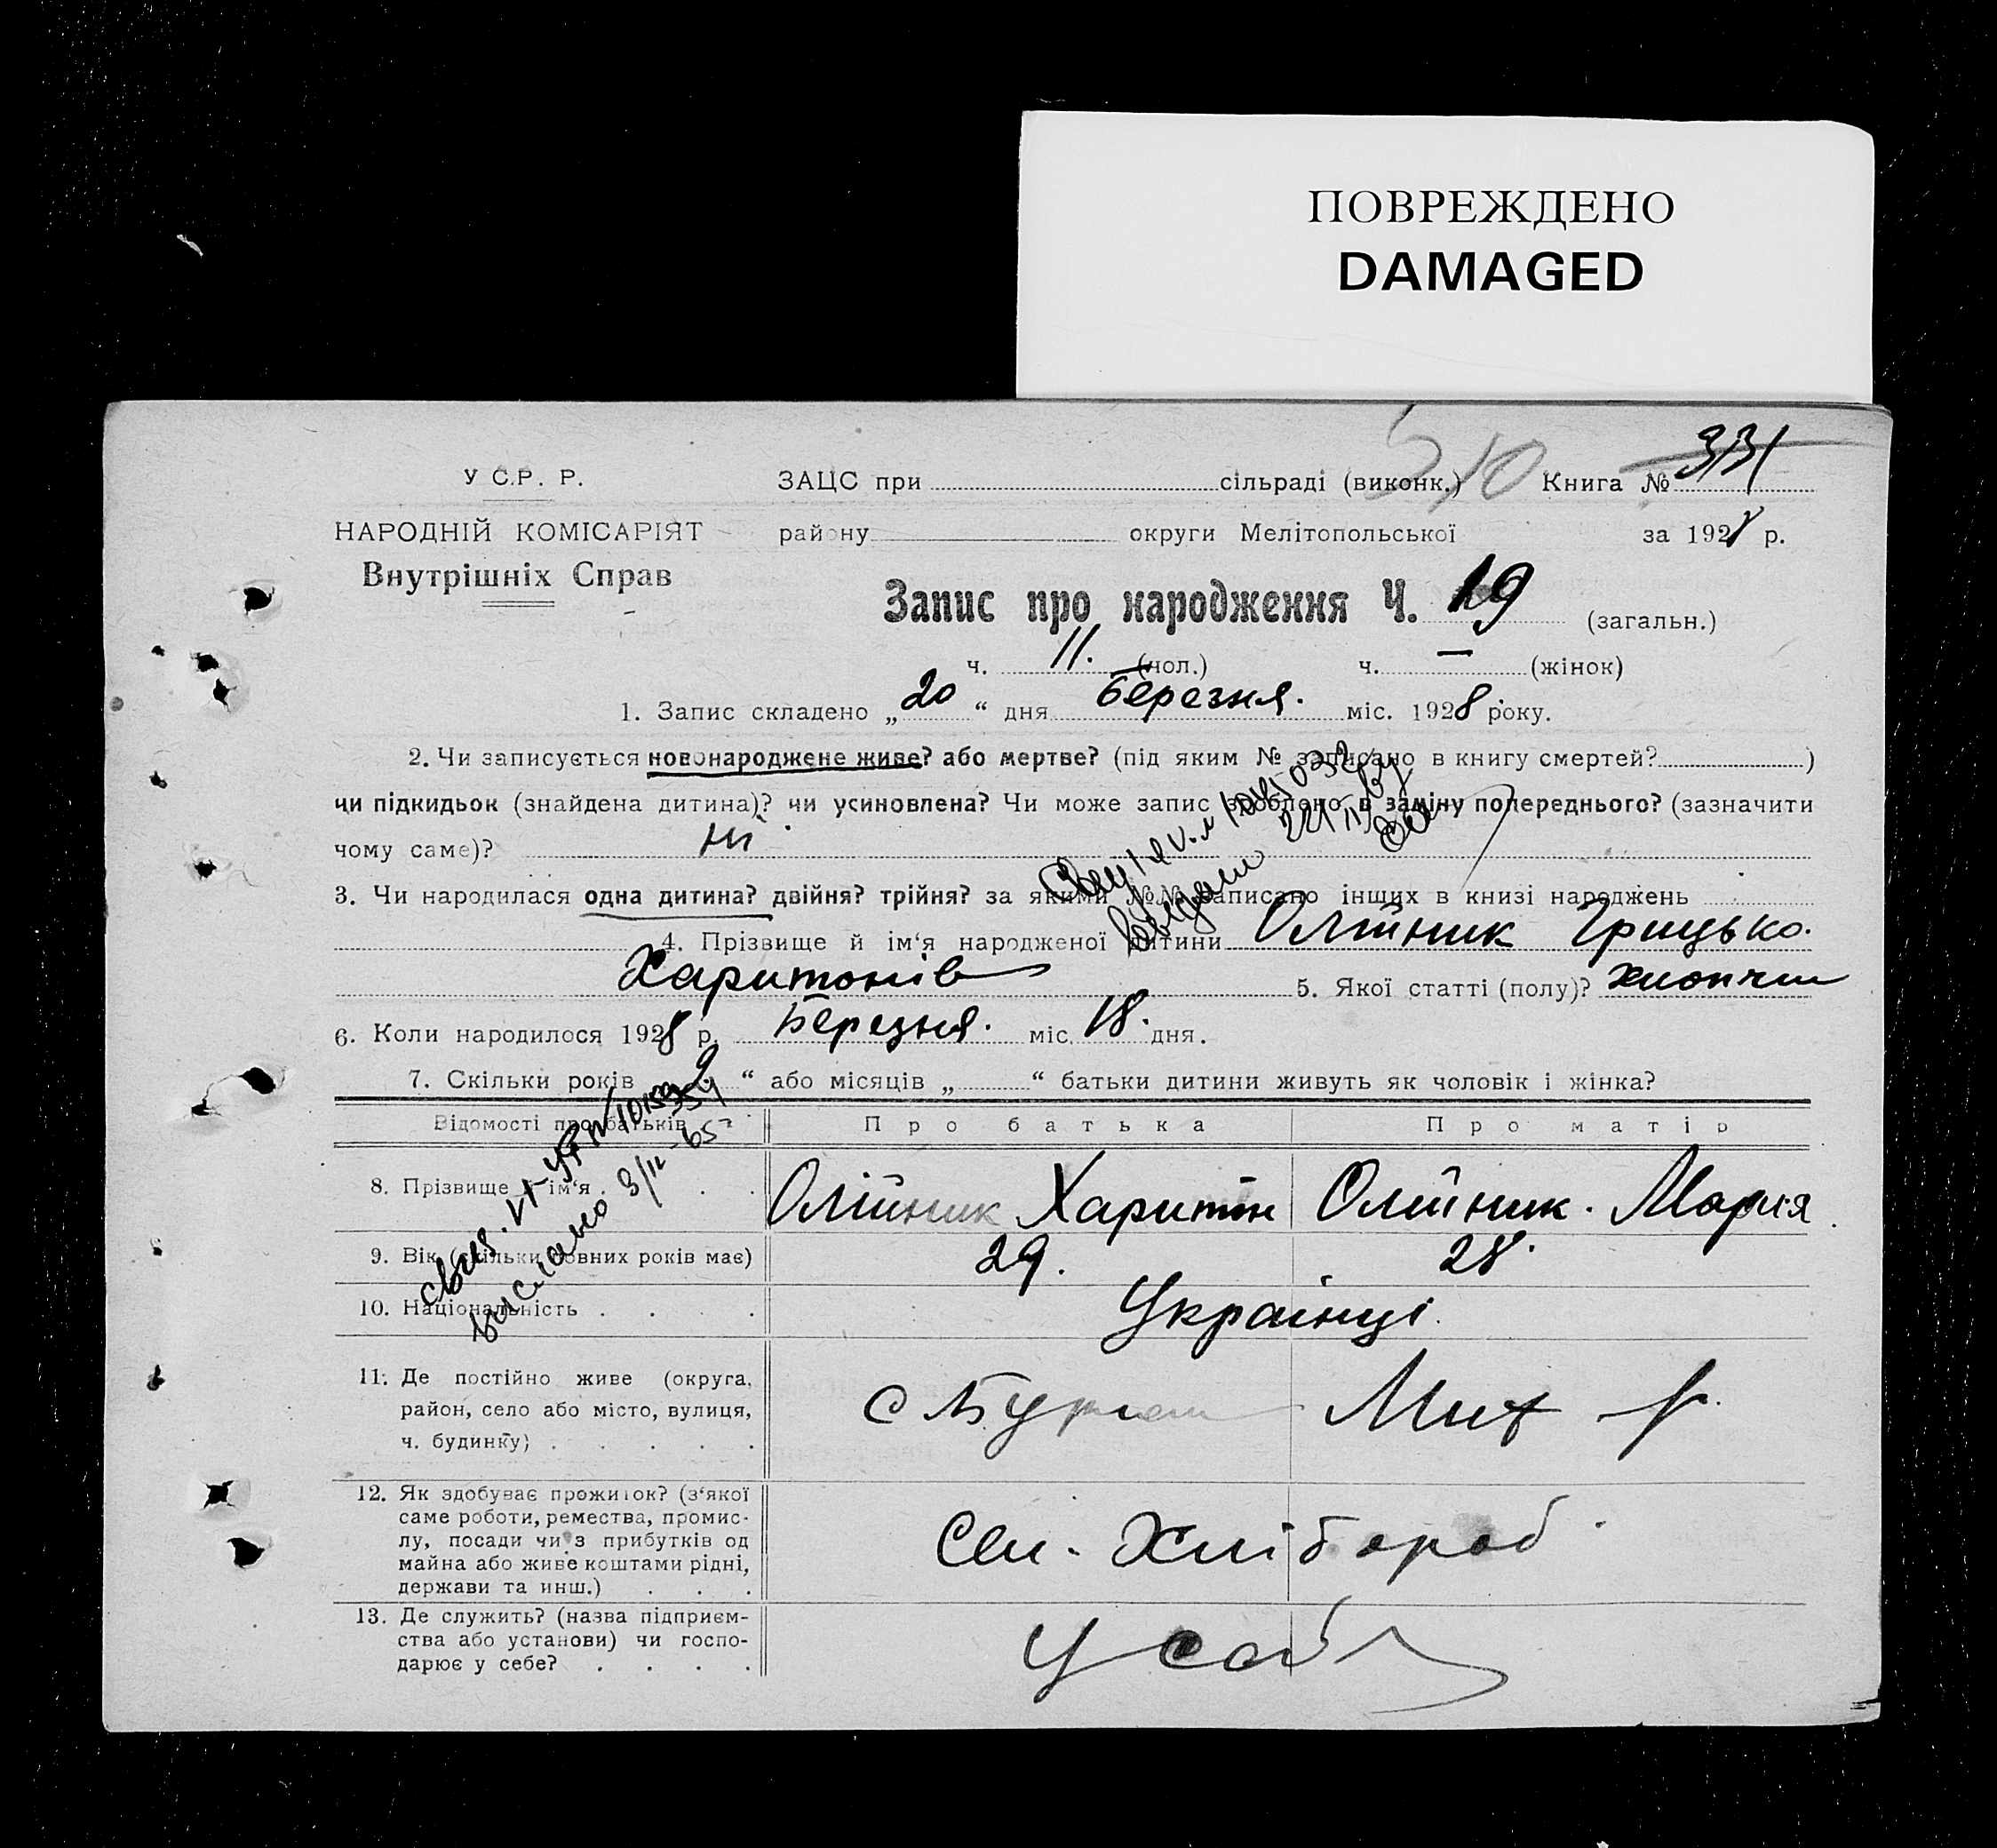 ПОВРЕЖДЕНО
DAMAGED
У С.Р. Р.
ЗАЦС при сільраді (виконк.) 510 Книга № 331
НАРОДНІЙ КОМІСАРІЯТ
району округи Мелітопольської за 1928 р.
Внутрішніх Справ
Запис про народження Ч. 19 (загальн.)
ч. 11. (чол.) ч. — (жінок)
1. Запис складено „ 20 “ дня Березня. міс. 1928 року.
2. Чи записується новонароджене живе? або мертве? (під яким № записано в книгу смертей? )
чи підкидьок (знайдена дитина)? чи усиновлена? Чи може запис зроблено в заміну попереднього? (зазначити
чому саме)? ні
3. Чи народилася одна дитина? двійня? трійня? за якими №№ записано інших в книзі народжень
4. Прізвище й ім‘я народженої дитини Олійник Грицько.
Харитонів 5. Якої статті (полу)? хлопчик
6. Коли народилося 1928 р. Березня. міс. 18. дня.
7. Скільки років 2 “ або місяців „ “ батьки дитини живуть як чоловік і жінка?
Відомості про батьків Про батька Про матір
8. Прізвище й ім‘я . . . Олійник Харитон Олійник. Мария
9. Вік (скільки повних років має) 29. 28.
10. Національність . . . Українці.
11. Де постійно живе (округа,
район, село або місто, вулиця,
ч. будинку) . . . . . с Мих р.
12. Як здобуває прожиток? (з‘якої
саме роботи, ремества, промис-
лу, посади чи з прибутків од
майна або живе коштами рідні,
держави та инш.) . . . Сел. Хлібороб.
13. Де служить? (назва підприєм-
ства або установи) чи госпо-
дарює у себе? . . . . У себе
выслано 3/II-65